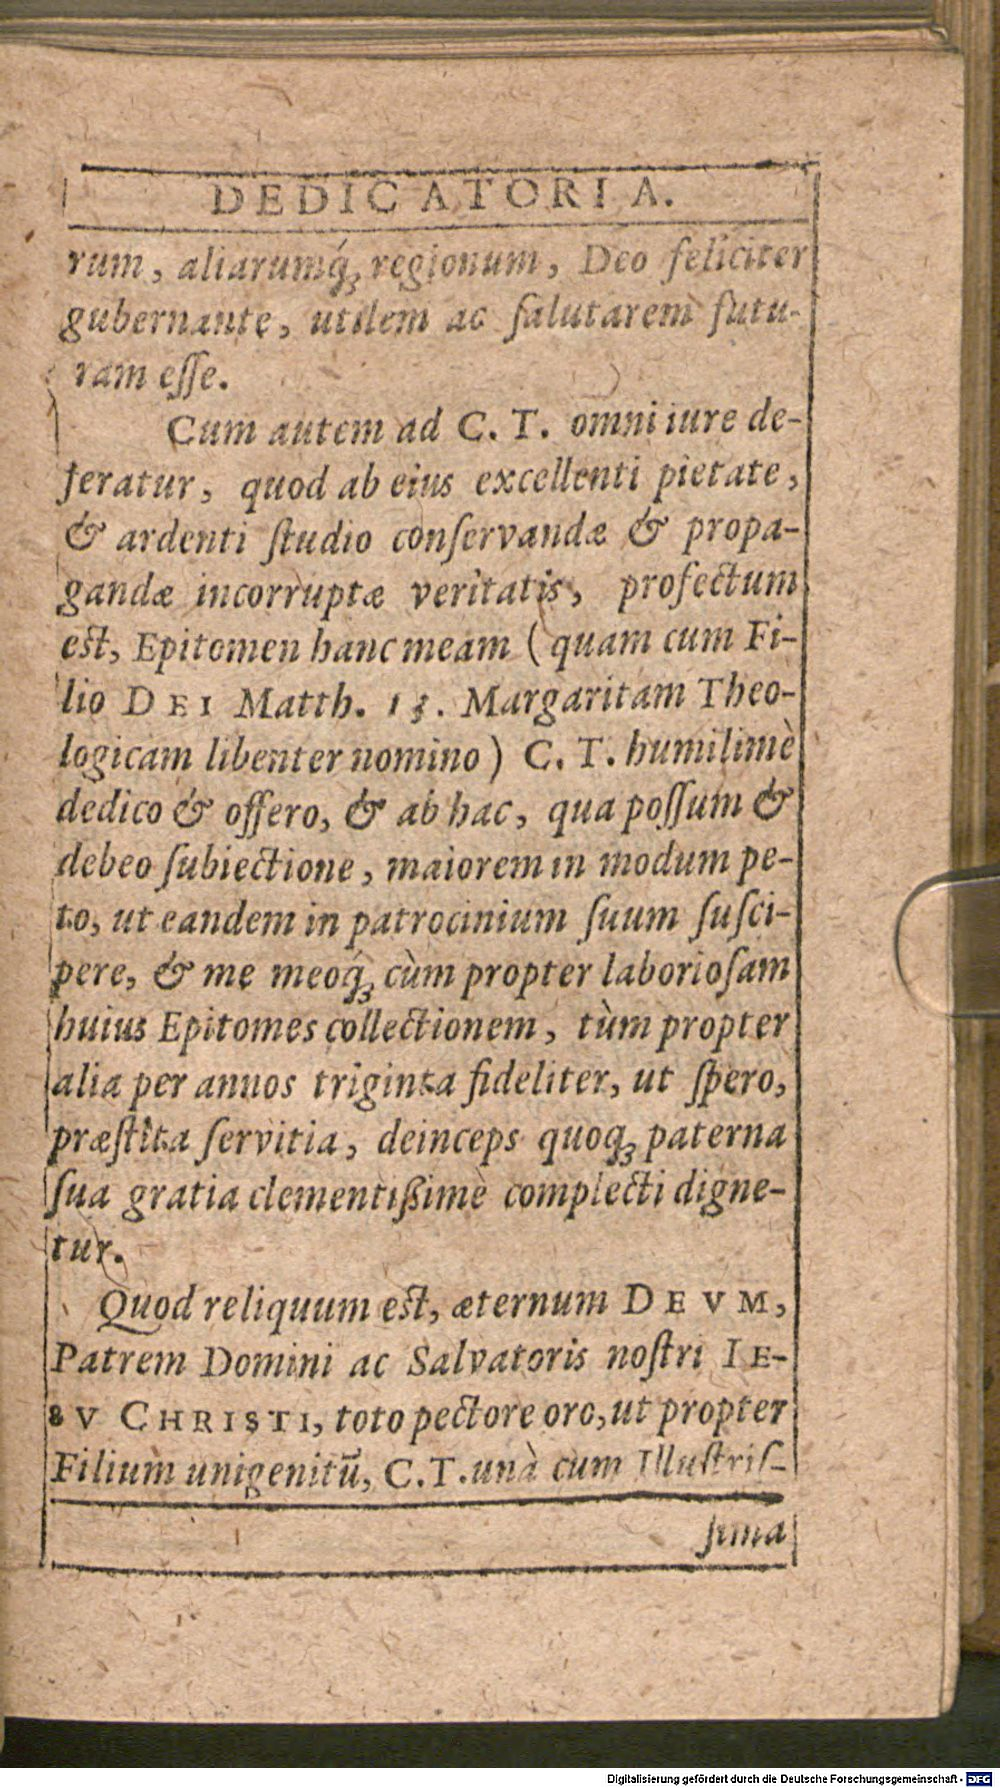 DEDICATORIA.
rum, aliarumq́ꝫ regionum, Deo feliciter
gubernante, utilem ac ſalutarem futu-
ram eſſe.
Cum autem ad C. T. omni iure de-
feratur, quod ab eius excellenti pietate,
& ardenti ſtudio conſervandæ & propa-
gandæ incorruptæ veritatis, profectum
est, Epitomen hanc meam (quam cum Fi-
lio DEI Matth. 13. Margaritam Theo-
logicam libenter nomino) C. T. humilimè
dedico & offero, & ab hac, qua poſſum &
debeo ſubiectione, maiorem in modum pe-
to, ut eandem in patrocinium ſuum ſuſci-
pere, & me meoq́ꝫ cùm propter laborioſam
huius Epitomes collectionem, tùm propter
alia per annos triginta fideliter, ut ſpero,
præſtita ſervitia, deinceps quoqꝫ paterna
ſua gratia clementißimè complecti digne-
tur.
Quod reliquum est, æternum DEVM,
Patrem Domini ac Salvatoris noſtri IE-
SV CHRISTI, toto pectore oro, ut propter
Filium unigenitū, C.T. unà cum Illuſtriſ-
ſima
Digitalisierung gefördert durch die Deutsche Forschungsgemeinschaft - DFG